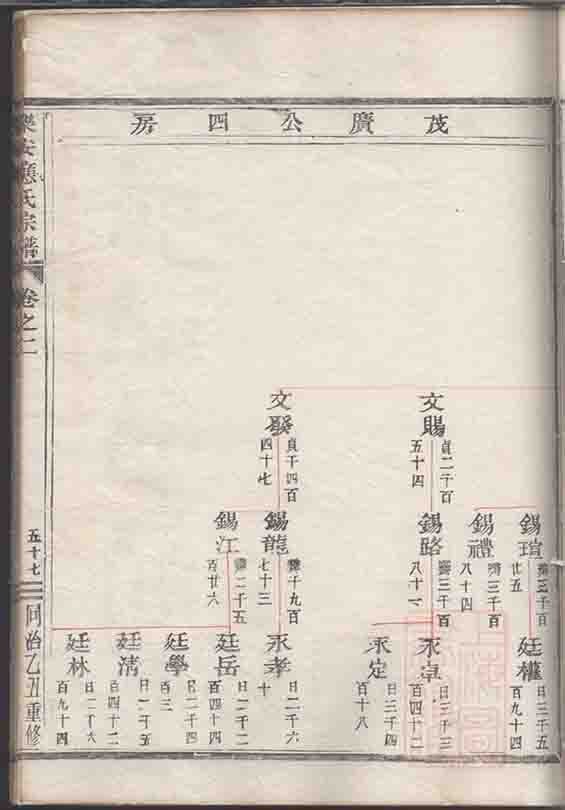 茂廣公四房
文賜
貞二千百
五十四
文發
貞千四百
四十七
錫瑄
三千百
廿五
錫禮
三千百
八十四
錫路
三千百
八十一
錫龍
千九百
七十三
錫江
二千五
百廿六
廷權
日三千五
百九十四
永卓
日三千三
百四十二
永定
日三千四
百十八
永孝
日二千六
十
廷岳
日二千二
百四十四
廷學
日二千四
百三
廷清
日二千五
百四十二
廷林
日二千六
百九十四
樂安應氏宗譜
卷之二
五十七
同治乙丑重修